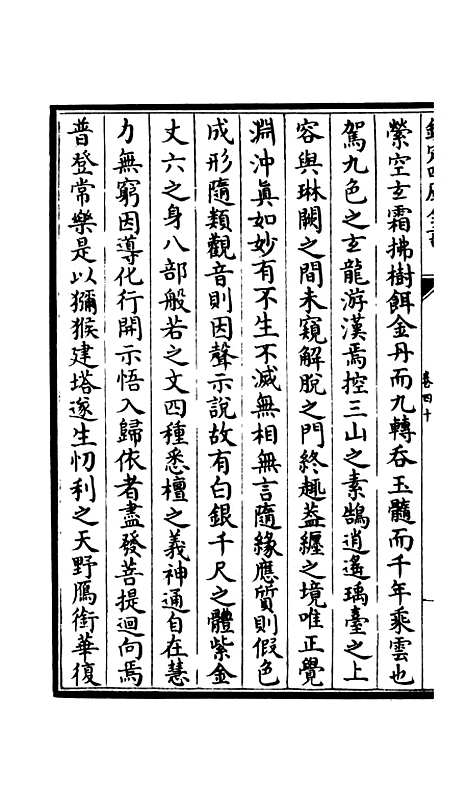 縈空玄霜拂樹餌金丹而九轉吞玉髓而千年乘雲也
駕九色之玄龍游漢焉控三山之素鵠逍遙瑀臺之上
容與琳闕之間未窺解脫之門終趣葢纏之境唯正覺
淵沖眞如妙有不生不滅無相無言隨緣應質則假色
成形隨類觀音則因聲示說故有白銀千尺之體紫金
丈六之身八部般若之文四種悉檀之義神通自在慧
力無窮因導化行開示悟入歸依者盡發菩提迴向焉
普登常樂是以獼猴建塔遂生忉利之天野鴈銜華復
卷四十